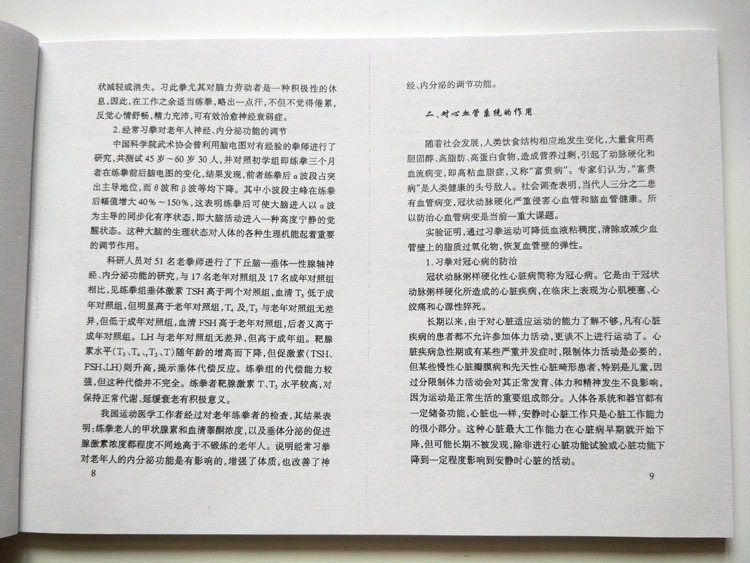 状减轻或消失。习此拳尤其对脑力劳动者是一种积极性的休
息,因此,在工作之余适当练拳,略出一点汗,不但不觉得倦累,
反觉心情舒畅,精力充沛,可有效治愈神经衰弱症。
2.经常习拳对老年人神经、内分泌功能的调节
中国科学院武术协会曾利用脑电图对有经验的拳师进行了
研究,共测试45岁~60岁30人,并对照初学组即练拳三个月
者在练拳前后脑电图的变化,结果发现,前者练拳后α波段占突
出主导地位,而θ波和β波等均下降。其中小波段主峰在练拳
后幅值增大40%~150%,这表明练拳后可使大脑进入以α波
为主导的同步化有序状态,即大脑活动进入一种高度宁静的觉
醒状态。这种大脑的生理状态对人体的各种生理机能起着重要
的调节作用。
科研人员对51名老拳师进行了下丘脑—垂体—性腺轴神
经、内分泌功能的研究,与17名老年对照组及17名成年对照组
相比,见练拳组垂体激素TSH高于两个对照组,血清T₃低于成
年对照组,但明显高于老年对照组,T₄及,T₃与老年对照组无差
异,但低于成年对照组,血清FSH高于老年对照组,后者又高于
成年对照组。LH与老年对照组无差异,但高于成年组。靶腺
素水平(T₃、T₄、,T₃、T)随年龄的增高而下降,但促激素(TSH、
FSH、LH)则升高,提示垂体代偿反应。练拳组的代偿能力较
强,但这种代偿并不完全。练拳者靶腺激素T、T₃水平较高,对
保持正常代谢、延缓衰老有积极意义。
我国运动医学工作者经过对老年练拳者的检查,其结果表
明:练拳老人的甲状腺素和血清睾酮浓度,以及垂体分泌的促进
腺激素浓度都程度不同地高于不锻炼的老年人。说明经常习拳
对老年人的内分泌功能是有影响的,增强了体质,也改善了神
8
经、内分泌的调节功能。
二、对心血管系统的作用
随着社会发展,人类饮食结构相应地发生变化,大量食用高
胆固醇、高脂肪、高蛋白食物,造成营养过剩,引起了动脉硬化和
血流病变,即高粘血脂症,又称“富贵病”。专家们认为,“富贵
病”是人类健康的头号敌人。社会调查表明,当代人三分之二患
有血管病变,冠状动脉硬化严重侵害心血管和脑血管健康。所
以防治心血管病变是当前一重大课题。
实验证明,通过习拳运动可降低血液粘稠度,清除或减少血
管壁上的脂质过氧化物,恢复血管壁的弹性。
1.习拳对冠心病的防治
冠状动脉粥样硬化性心脏病简称为冠心病。它是由于冠状
动脉粥样硬化所造成的心脏疾病,在临床上表现为心肌梗塞、心
绞痛和心源性猝死。
长期以来,由于对心脏适应运动的能力了解不够,凡有心脏
疾病的患者都不允许参加体力活动,更谈不上进行运动了。心
脏疾病急性期或有某些严重并发症时,限制体力活动是必要的,
但某些慢性心脏瓣膜病和先天性心脏畸形患者,特别是儿童,因
过分限制体力活动会对其正常发育、体力和精神发生不良影响,
因为运动是正常生活的重要组成部分。人体各系统和器官都有
一定储备功能,心脏也一样,安静时心脏工作只是心脏工作能力
的很小部分。这种心脏最大工作能力在心脏病早期就开始下
降,但可能长期不被发现,除非进行心脏功能试验或心脏功能下
降到一定程度影响到安静时心脏的活动。
9